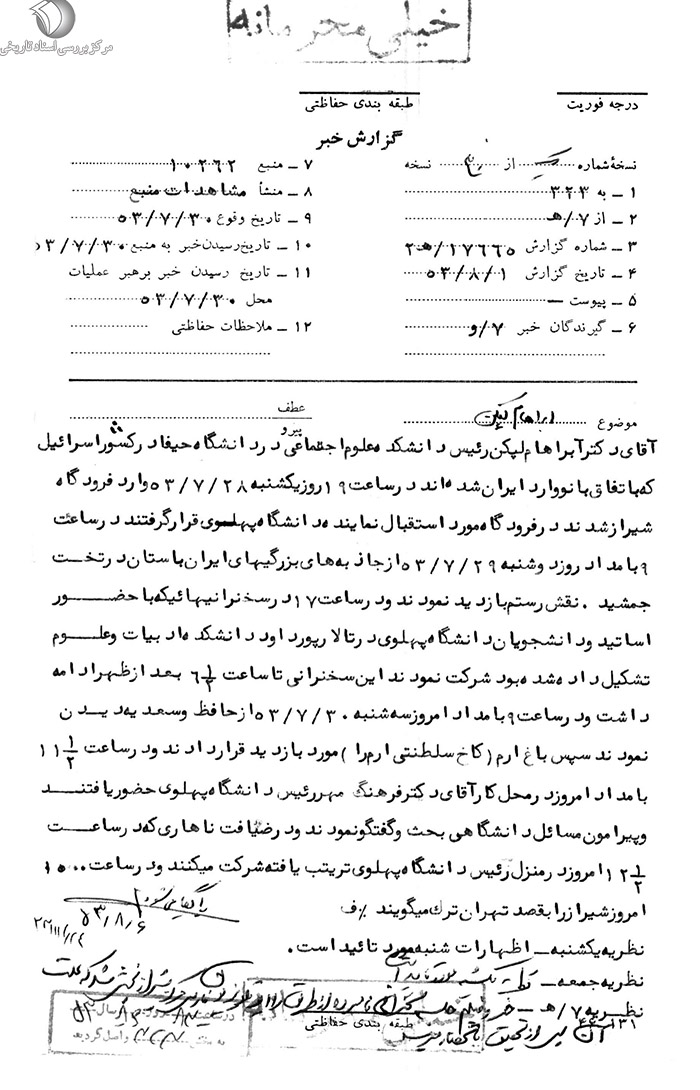 مرکز بررسی اسناد تاریخی
خیلی محرمانه
درجه فوریت
طبقه بندی حفاظتی
گزارش خبر
نسخهٔ شماره از نسخه
۱ ــ به ۳۲۳
۲ ــ از ۷/هـ
۳ ــ شماره گزارش ۱۷۶۶۵/هـ۲
۴ ــ تاریخ گزارش ۵۳/۸/۱
۵ ــ پیوست ــ
۶ ــ گیرندگان خبر ۷/و
۷ ــ منبع ۱۰۲۶۲
۸ ــ منشأ مشاهدات منبع
۹ ــ تاریخ وقوع ۵۳/۷/۳۰
۱۰ ــ تاریخ رسیدن خبر به منبع ۵۳/۷/۳۰
۱۱ ــ تاریخ رسیدن خبر برهبر عملیات
محل ۵۳/۷/۳۰
۱۲ ــ ملاحظات حفاظتی
موضوع ابراهام لپکن
عطف
پیرو
آقای دکتر آبراهام لپکن رئیس دانشکده علوم اجتماعی در دانشگاه حیفا در کشور اسرائیل
که باتفاق بانو وارد ایران شده اند در ساعت ۱۹ روز یکشنبه ۵۳/۷/۲۸ وارد فرودگاه
شیراز شدند در فرودگاه مورد استقبال نماینده دانشگاه پهلوی قرار گرفتند در ساعت
۹ بامداد روز دوشنبه ۵۳/۷/۲۹ از جاذبه های بزرگیهای ایران باستان در تخت
جمشید . نقش رستم بازدید نمودند و در ساعت ۱۷ در سخنرانیهائیکه با حضور
اساتید و دانشجویان دانشگاه پهلوی در تالار پورداود دانشکده ادبیات و علوم
تشکیل داده شده بود شرکت نمودند این سخنرانی تا ساعت ۶ ۱/۲ بعد از ظهر ادامه
داشت و در ساعت ۹ بامداد امروز سه شنبه ۵۳/۷/۳۰ از حافظ و سعدیه دیدن
نمودند سپس باغ ارم (کاخ سلطنتی ارم را) مورد بازدید قرار دادند و در ساعت ۱۱ ۱/۲
بامداد امروز در محل کار آقای دکتر فرهنگ مهر رئیس دانشگاه پهلوی حضور یافتند
و پیرامون مسائل دانشگاهی بحث و گفتگو نمودند و در ضیافت ناهاری که در ساعت
۱۲ ۱/۲ امروز در منزل رئیس دانشگاه پهلوی تریتب یافته شرکت میکنند و در ساعت ۱۵۰۰
امروز شیراز را بقصد تهران ترک میگویند ٪ف
۵۳/۸/۶
نظریه یکشنبه ــ اظهارات شنبه مورد تائید است .
نظریه جمعه ــ نظریه یکشنبه مورد تائید است
نظریه ۷/هـ ــ
طبقه بندی حفاظتی